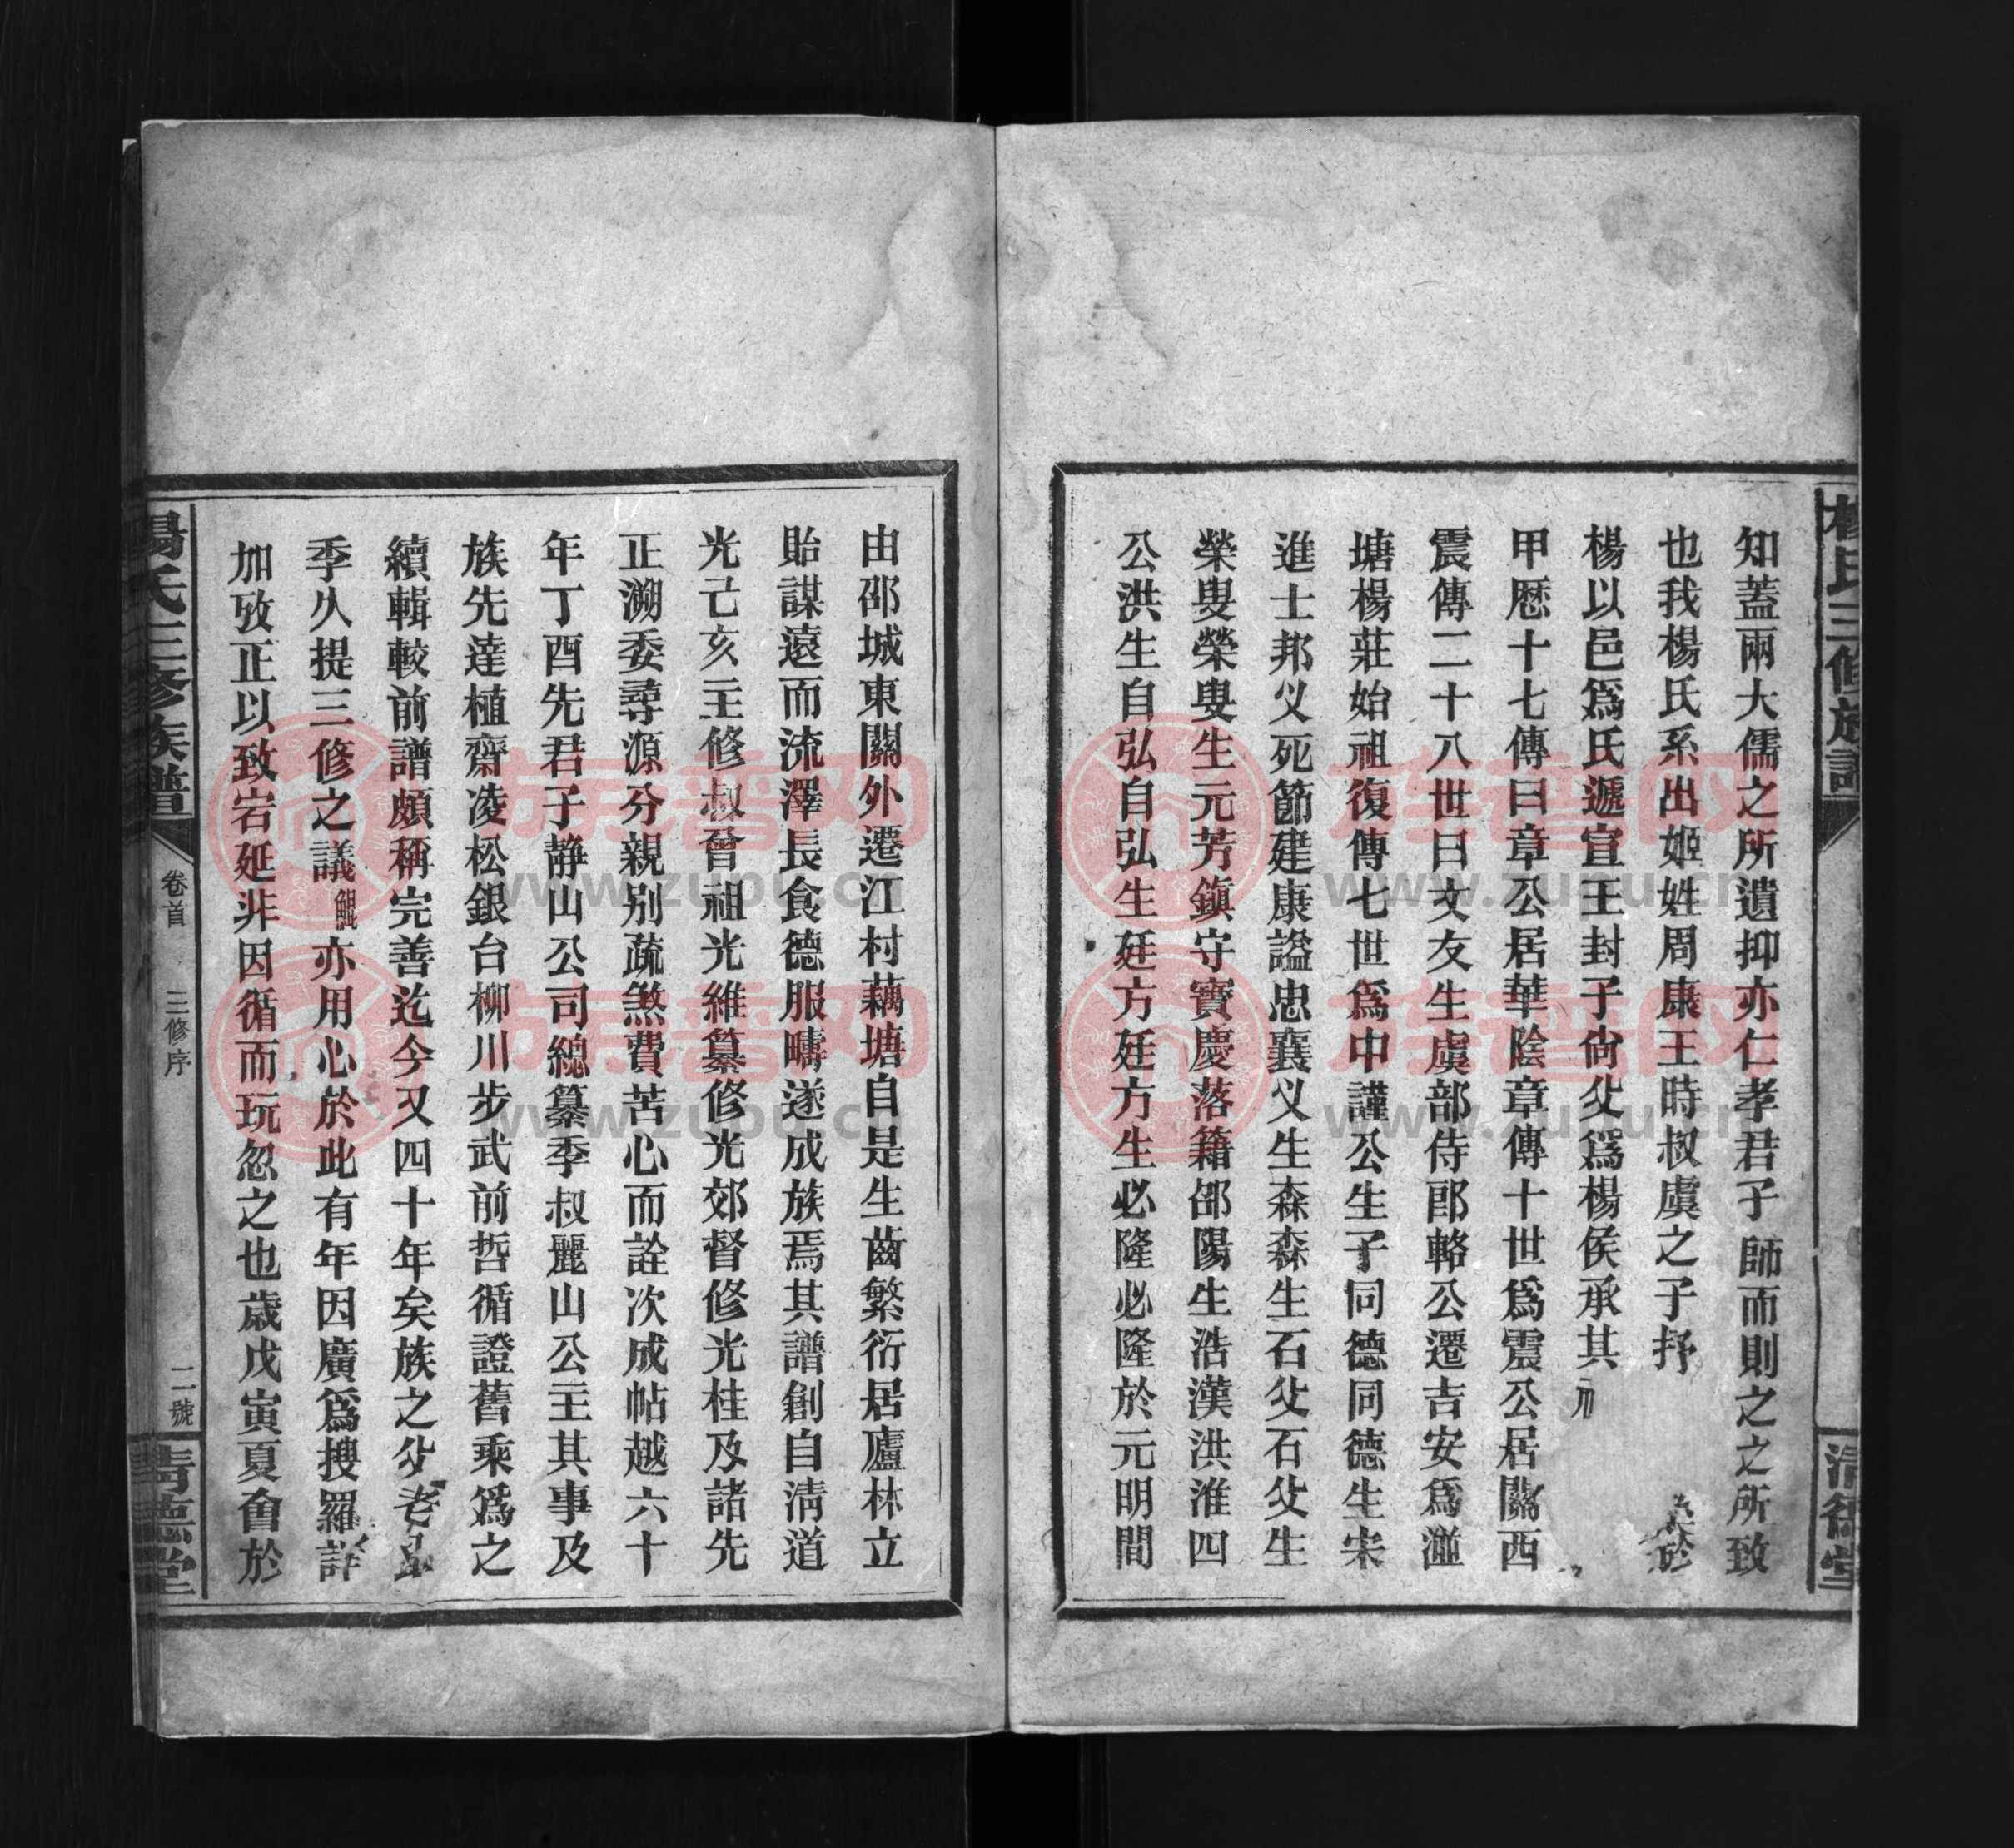 楊氏三修族譜
清德堂
知蓋兩大儒之所遺抑亦仁孝君子師而則之之所致
也我楊氏系出姬姓周康王時叔虞之子抒
楊以邑爲氏遞宣王封子尙父爲楊侯承其
甲歷十七傳曰章公居華陰章傳十世爲震公居關西
震傳二十八世曰文友生虞部侍郎輅公遷吉安爲湴
塘楊莊始祖復傳七世爲中謹公生子同德同德生宋
進士邦乂死節建康謚忠襄乂生森森生石父石父生
榮叟榮叟生元芳鎮守寶慶落籍邵陽生浩漢洪淮四
公洪生自弘自弘生廷方廷方生必隆必隆於元明間
由邵城東關外遷江村藕塘自是生齒繁衍居廬林立
貽謀遠而流澤長食德服疇遂成族焉其譜創自淸道
光己亥主修叔曾祖光維纂修光郊督修光桂及諸先
正溯委尋源分親别疏煞費苦心而詮次成帖越六十
年丁酉先君子静山公司總纂季叔麗山公主其事及
族先達植齋凌松銀台柳川步武前哲循證舊乘爲之
續輯較前譜頗稱完善迄今又四十年矣族之父老
季久提三修之議亦用心於此有年因廣爲搜羅詳
加攷正以致宕延非因循而玩忽之也歲戊寅夏會於
楊氏三修族譜
卷首
三修序
二號
淸德堂
族譜网
www.zupu.cn
族譜网
www.zupu.cn
族譜网
www.zupu.cn
族譜网
www.zupu.cn